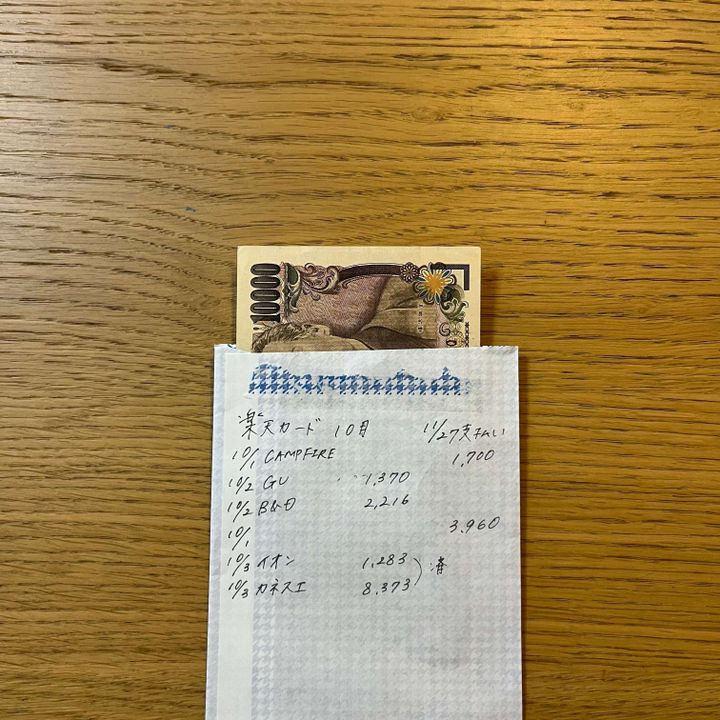 10000
楽天カード 10月 11/27支払い
10/1 CAMPFIRE 1,700
10/2 GU 1,370
10/2 B&D 2,216
10/1 3,960
10/3 イオン 1,283
10/3 カネスエ 8,373 済